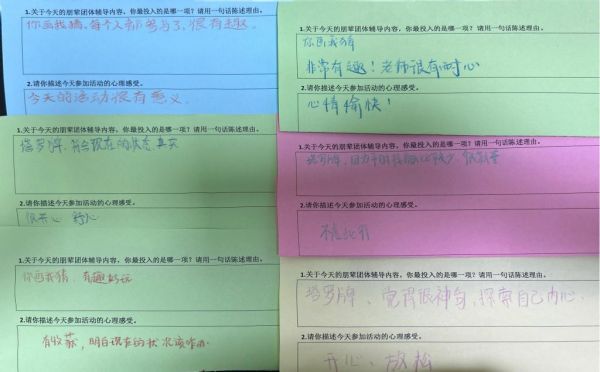 1.关于今天的朋辈团体辅导内容，你最投入的是哪一项？请用一句话陈述理由。
你画我猜，每个人都参与了，很有趣。
2.请你描述今天参加活动的心理感受。
今天的活动很有意义
1.关于今天的朋辈团体辅导内容，你最投入的是哪一项？请用一句话陈述理由。
塔罗牌，
真实
2.请你描述今天参加活动的心理感受。
很开心 舒心
1.关于今天的朋辈团体辅导内容，你最投入的是哪一项？请用一句话陈述理由。
你画我猜，有趣好玩
2.请你描述今天参加活动的心理感受。
有收获，明白现在的状况该咋办.
1.关于今天的朋辈团体辅导内容，你最投入的是哪一项？请用一句话陈述理由。
你画我猜
非常有趣！老师很有耐心
2.请你描述今天参加活动的心理感受。
心情愉快！
1.关于今天的朋辈团体辅导内容，你最投入的是哪一项？请用一句话陈述理由。
塔罗牌，因为平时接触
2.请你描述今天参加活动的心理感受。
1.关于今天的朋辈团体辅导内容，你最投入的是哪一项？请用一句话陈述理由。
塔罗牌、觉得很神奇，探索自己内心.
2.请你描述今天参加活动的心理感受。
开心、放松